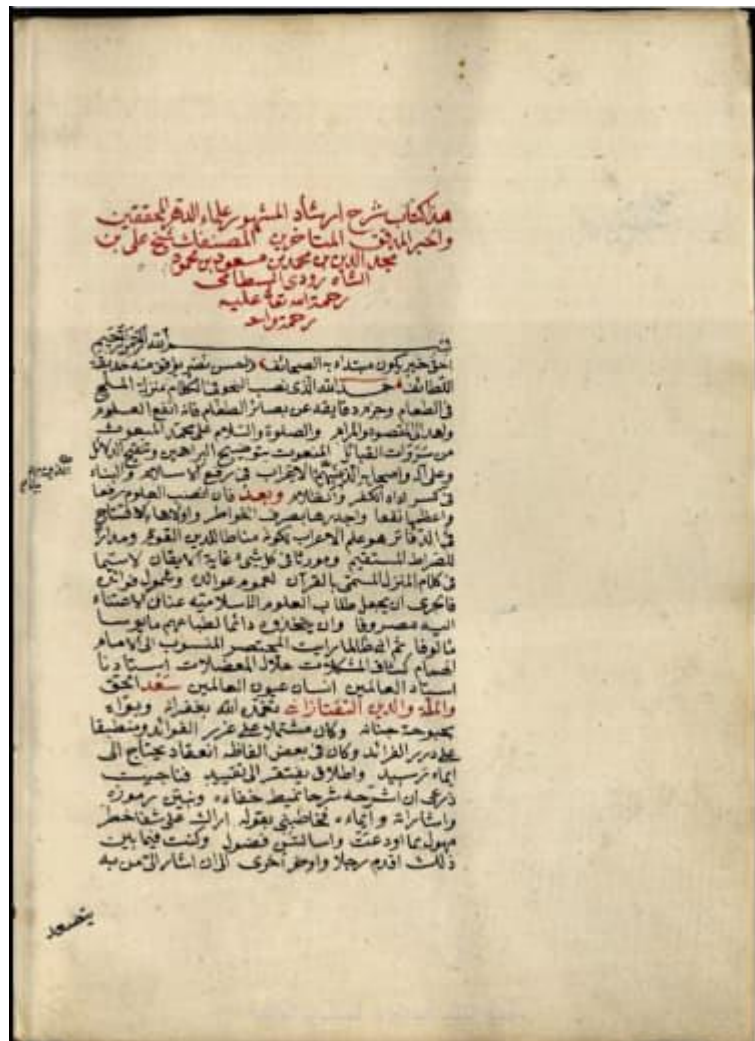 هذا كتاب شرح ارشاد المشهور علماء الدهر المحققين
واخبر المدقق المتاخرين المصنفك شيخ على بن
مجد الدين بن محمد بن مسعود بن محمود
الشاه رودى البسطامى
رحمة الله تعا عليه
رحمة واسعة
بسم الله الرحمن الرحيم
احق خبر يكون مبتداء به الصحائف واحسن منه حديقة
اللطائف حمد الله الذى نصب النحو فى الكلام منزلة الملح
فى الطعام وجرد دقايقه عن بصائر الطغام فانه انفع العلوم
واهدا الى المقصود والمرام والصلوة والسلام على محمد المبعوث
من سروات القبائل المنعوت بتوضيح البراهين وتنقيح الدلائل
وعلى اله واصحابه الاعراب فى رفع الاسلام والبناء
فى كسر اداه الكفر والظلام وبعد فان انصب العلوم رفعا
واعظمها نفعا واجدرها بصرف الخواطر واولاها بالافتتاح
فى الدفاتر هو علم الاعراب لكونه مناطا للدين القويم ومدارا
للصراط المستقيم ومورثا فى كل شئ غاية الايقان لاسيما
فى كلام المنزل المسمى بالقرآن لعموم عوائده وشمول فوائده
فالحرى ان يجعل طلاب العلوم الاسلاميه عنان الاعتناء
اليه مصروفا وان يتخذوه دائما لطباعهم مانوسا
مالوفا ثم انى طالما رايت المختصر المنسوب الى الامام
الهمام كشاف المشكلات حلال المعضلات استادنا
استاد العالمين انسان عيون العالمين سعد الحق
والملة والدين التفتازانى تغمده الله بغفرانه وبواه
بحبوحة جنانه وكان مشتملا على غرر الفوائد ومنطبقا
على درر الفرائد وكان فى بعض الفاظه انعقاد يحتاج الى
ايماء ترسيد واطلاق يفتقر الى تقييد فناجيت
ذرعى ان اشرحه شرحا تميط خفاءه وتبين رموزه
واشاراته وايماءه فخاطبنى بقوله اراك على شفا خطر
مهول بما اودعت فضول وكنت فيما بين
ذلك اقدم رجلا واوخر اخرى الى ان اشار الى من به
يتصعد